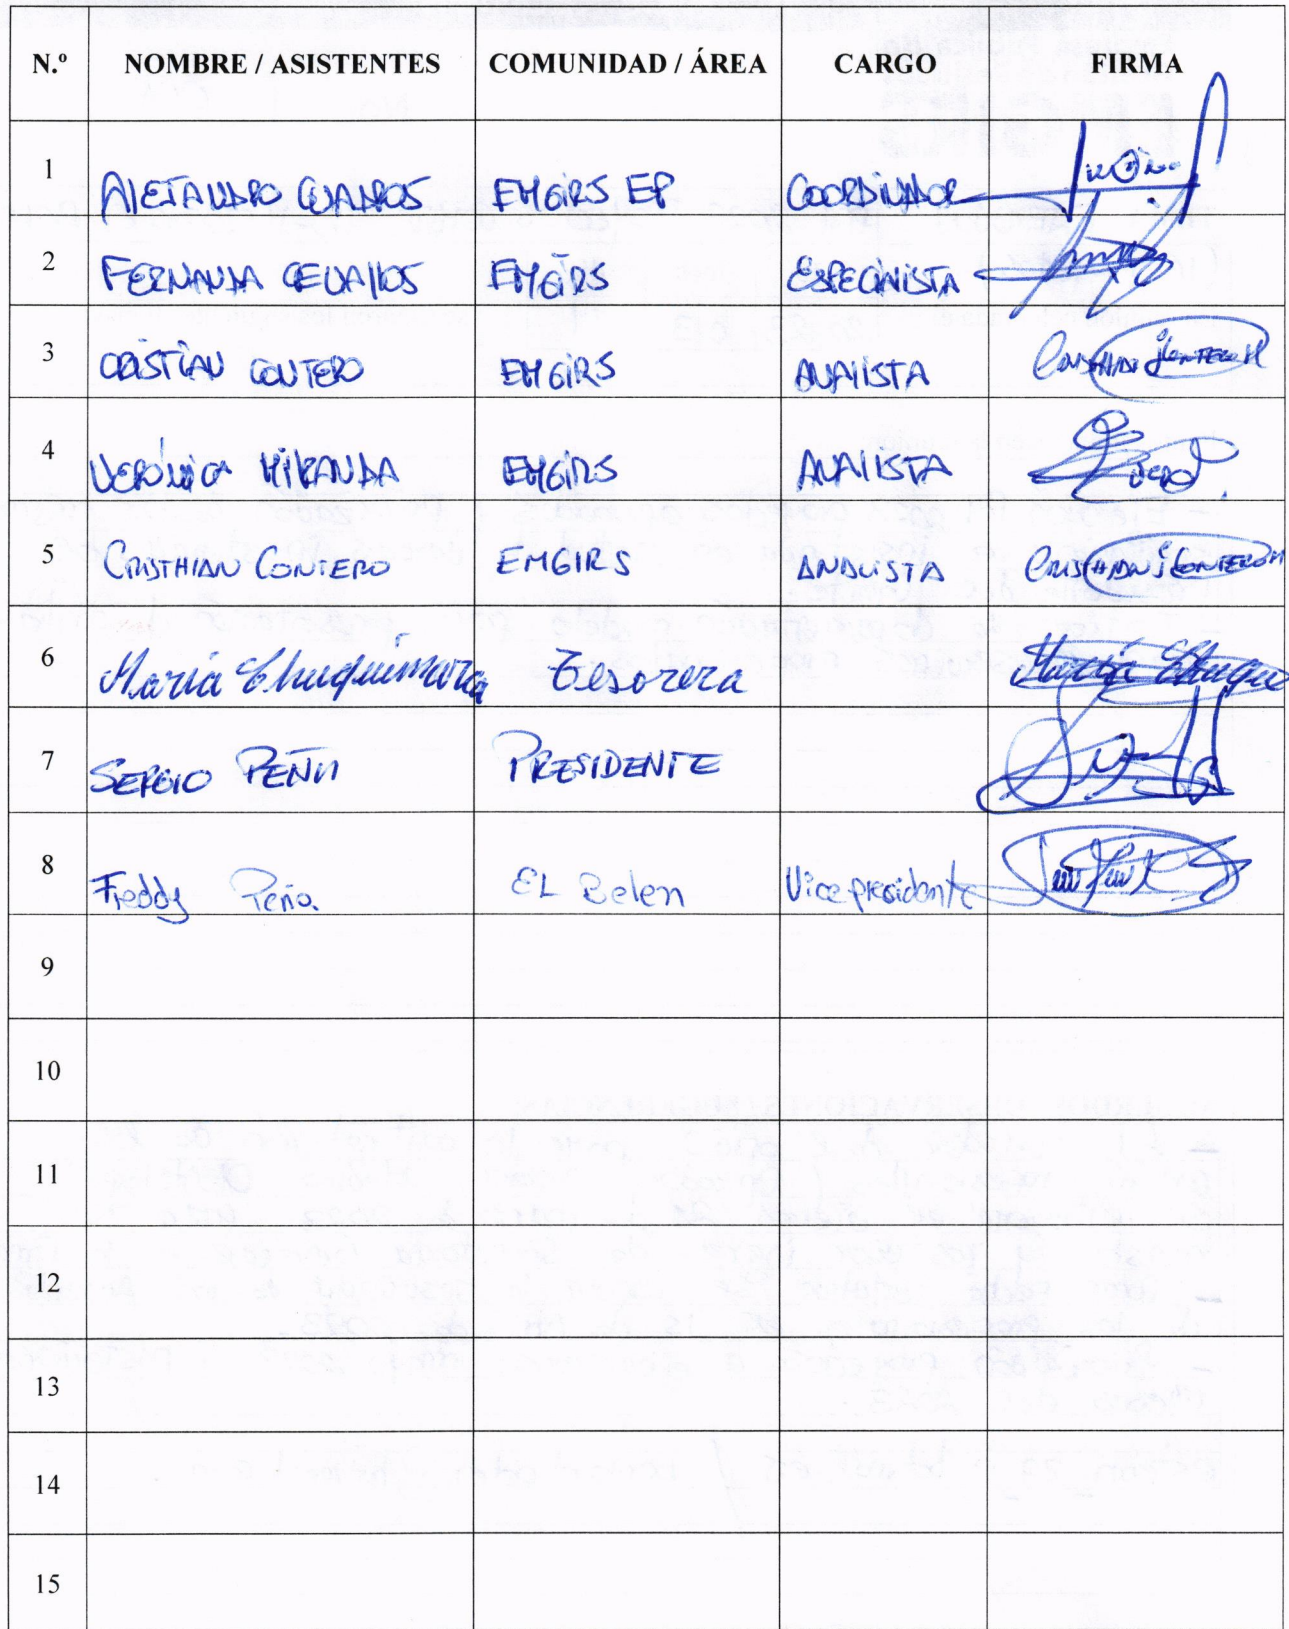 N.º NOMBRE / ASISTENTES COMUNIDAD / ÁREA CARGO FIRMA
1 ALEJANDRO CUADROS EMGIRS EP COORDINADOR
2 FERNANDA CEVALLOS EMGIRS ESPECIALISTA
3 CRISTIAN CONTERO EMGIRS ANALISTA
4 VERÓNICA MIRANDA EMGIRS ANALISTA
5 CRISTHIAN CONTERO EMGIRS ANALISTA CRISTHIAN CONTERO
6 María Chuquimora Tesorera María Chuqui
7 SERGIO PEÑA PRESIDENTE
8 Freddy Peña. EL Belen Vicepresidente
9
10
11
12
13
14
15